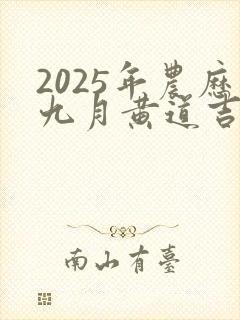 2025年農歷
九月黄道吉
南山有臺